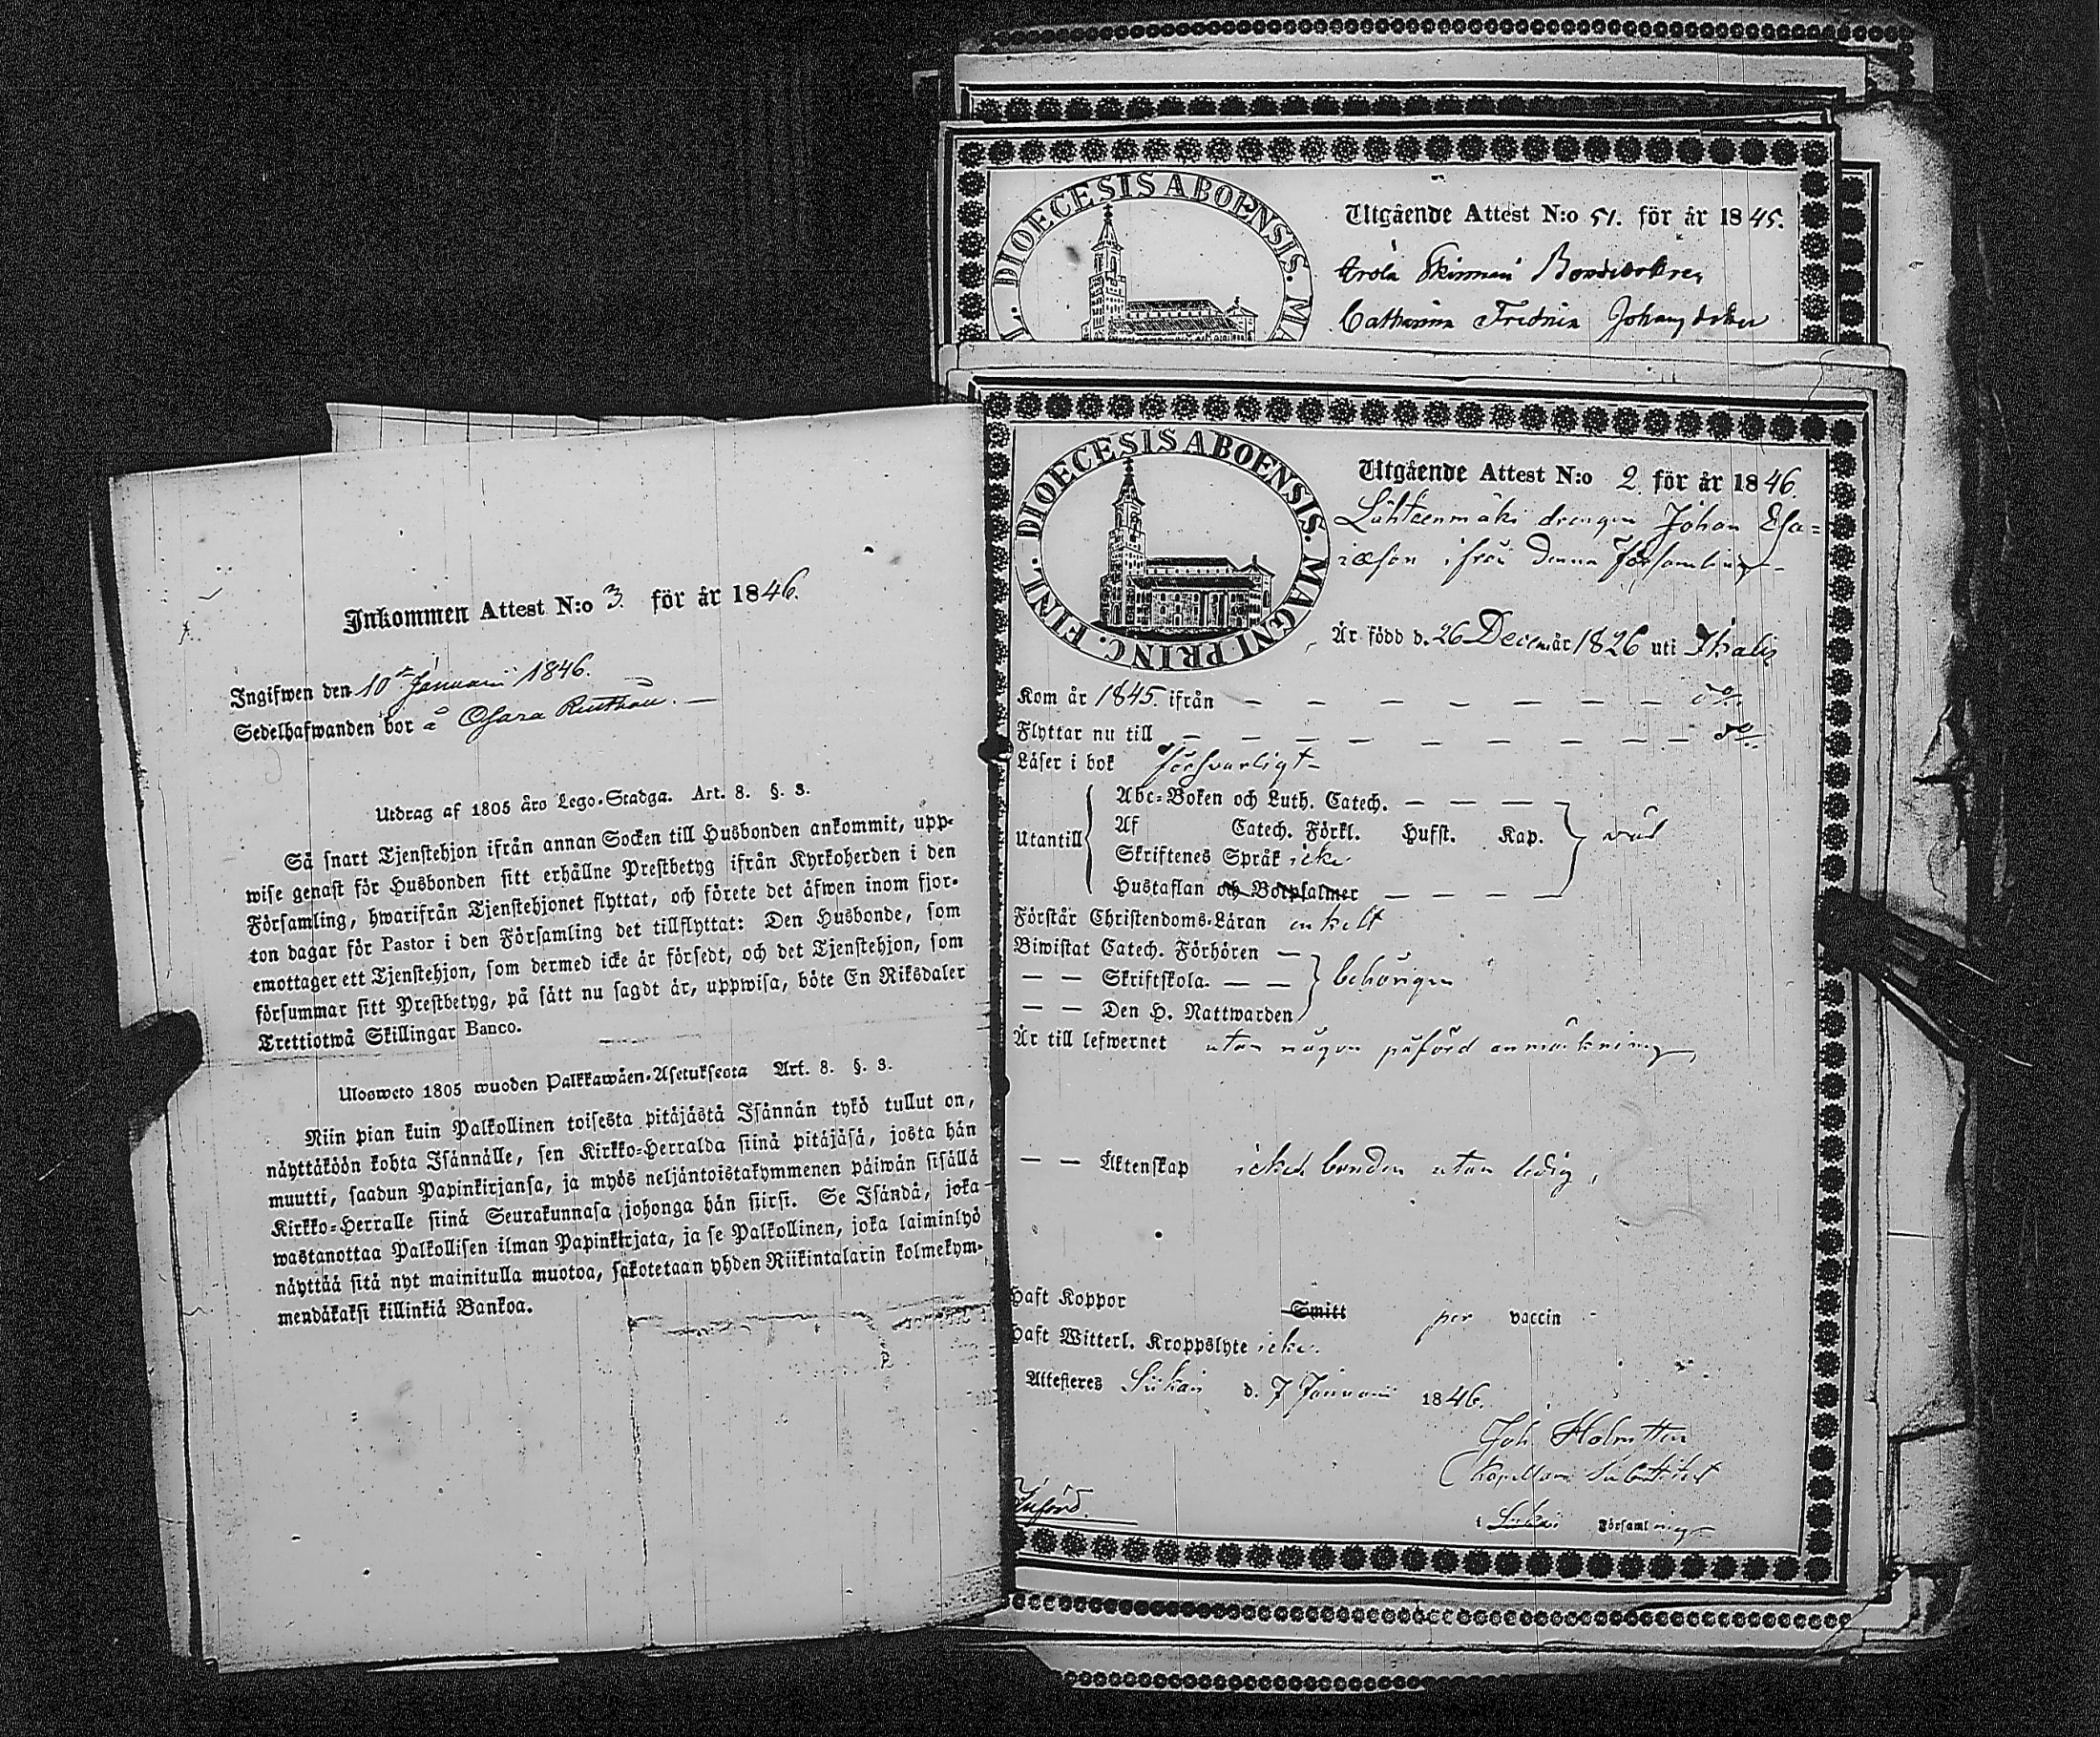 DIOECESIS ABOENSIS. MA
Utgående Attest N:o 51. för år 1845.
Catharina Johansdotter
Inkommen Attest N:o 3. för år 1846.
Ingifwen den 10de Januarii 1846.
Sedelhafwanden bor å
Utdrag af 1805 års Lego-Stadga. Art. 8. §. 3.
Så snart Tjenstehjon ifrån annan Socken till Husbonden ankommit, upp-
wise genast för Husbonden sitt erhållne Prestbetyg ifrån Kyrkoherden i den
Församling, hwarifrån Tjenstehjonet flyttat, och förete det äfwen inom fjor-
ton dagar för Pastor i den Församling det tillflyttat: Den Husbonde, som
emottager ett Tjenstehjon, som dermed icke är försedt, och det Tjenstehjon, som
försummar sitt Prestbetyg, på sätt nu sagdt är, uppwisa, böte En Riksdaler
Trettiotwå Skillingar Banco.
Ulosweto 1805 wuoden Palkkawäen-Asetuksesta Art. 8. §. 3.
Niin pian kuin Palkollinen toisesta pitäjästä Isännän tykö tullut on,
näyttäköön kohta Isännälle, sen Kirkko-Herralda siinä pitäjäsä, josta hän
muutti, saadun Papinkirjansa, ja myös neljäntoistakymmenen päiwän sisällä
Kirkko-Herralle siinä Seurakunnasa johonga hän siirsi. Se Isändä, joka
wastanottaa Palkollisen ilman Papinkirjata, ja se Palkollinen, joka laiminlyö
näyttää sitä nyt mainitulla muotoa, sakotetaan yhden Riikintalarin kolmekym-
mendäkaksi killinkiä Bankoa.
DIOECESIS ABOENSIS. MAGNI PRINC. FINL.
Utgående Attest N:o 2. för år 1846.
Lähteenmäki drengen Johan Esa=
iæson ifrån denna Församling
Är född d. 26 Decemb år 1826 uti Ikalis
Kom år 1845. ifrån — — — — — — — do
Flyttar nu till — — — — — — — — —
Läser i bok försvarligt
Utantill
Abc-Boken och Luth. Catech. — — —
Af Catech. Förkl. Hufst. Kap.
Skriftenes Språk icke
Hustaflan och Botpsalmer — — —
Förstår Christendoms-Läran enkelt
Biwistat Catech. Förhören —
— — Skriftskola. — — behörigen
— — Den H. Nattwarden
Är till lefwernet utan någon påförd anmärkning,
— — Äktenskap icke bunden utan ledig,
Haft Koppor Smitt per vaccin
Haft Witterl. Kroppslyte icke.
Attesteres d. 7 Januarii 1846.
Joh. Holmsten
Kapellans Substitut
i Församling
Införd.